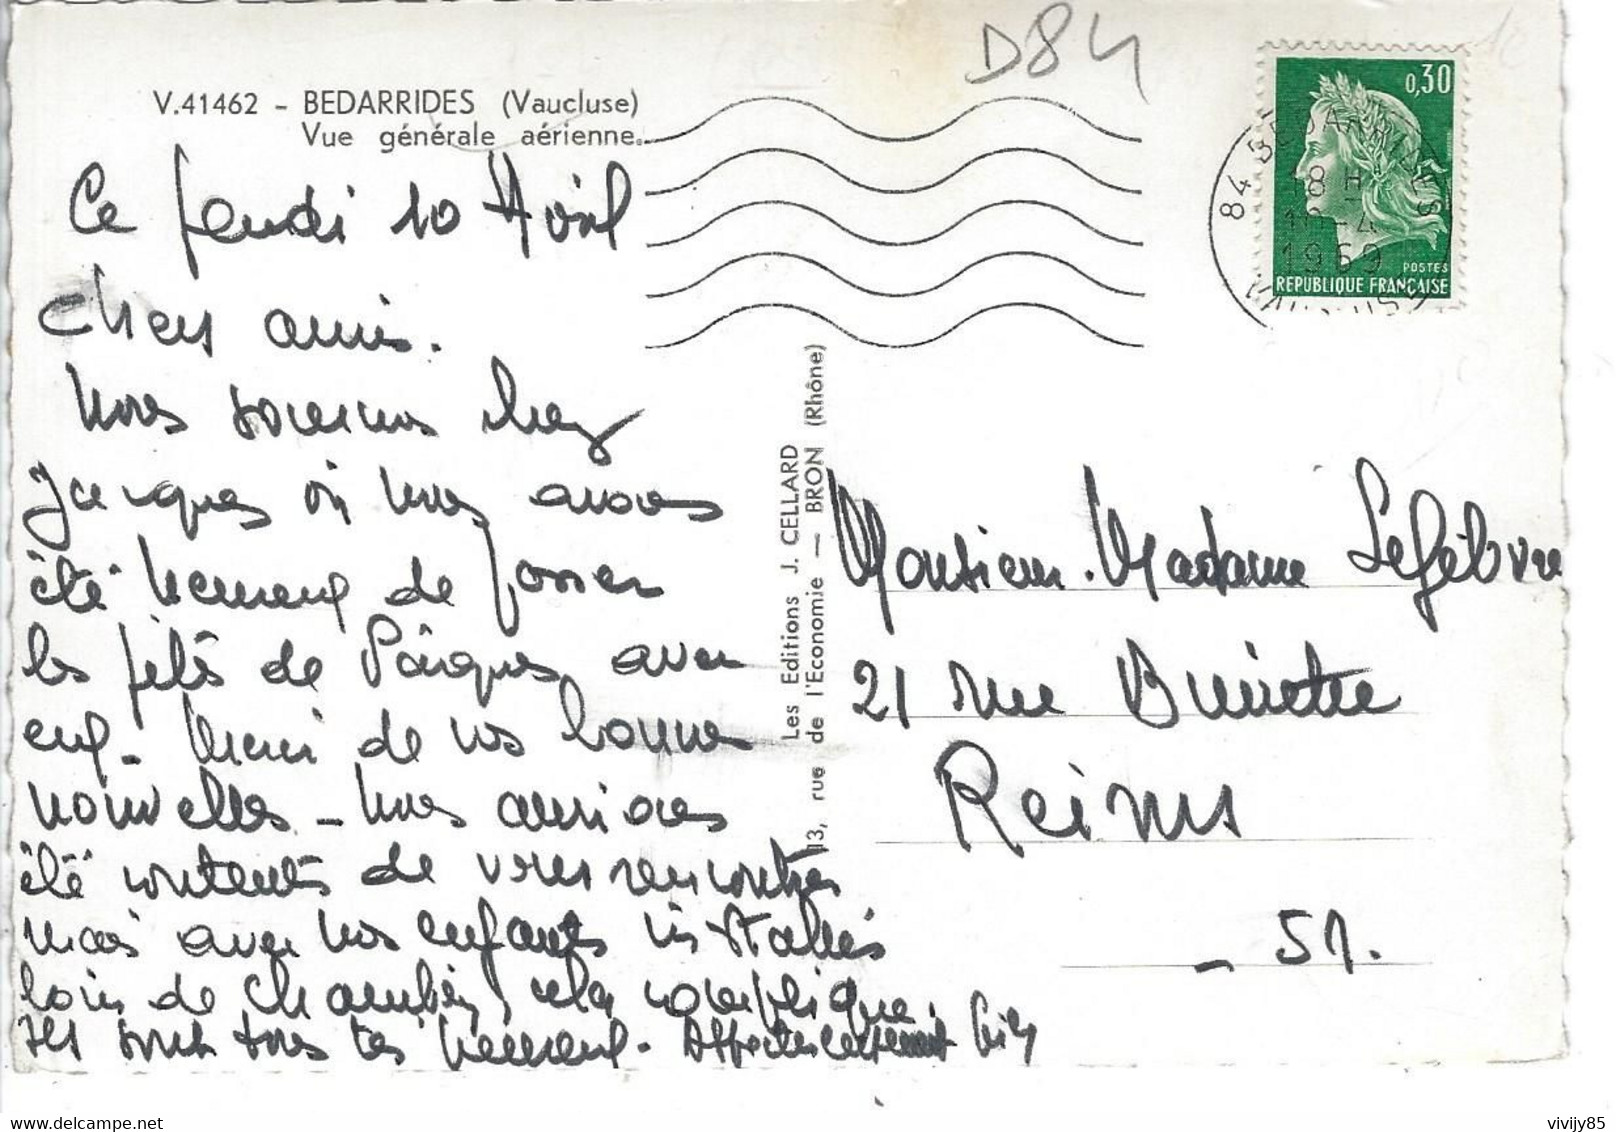 D84
V.41462 - BEDARRIDES (Vaucluse)
Vue générale aérienne.
0,30
POSTES
REPUBLIQUE FRANÇAISE
84 BEDARRIDES
18 H
10-4
1969
VAUCLUSE
Ce jeudi 10 Avril
Chers amis.
Nous sommes chez
Jacques où nous avons
été heureux de passer
les fêtes de Pâques avec
eux. Merci de vos bonnes
nouvelles - nous aurions
été contents de vous rencontrer
mais avec nos enfants installés
loin de Chambéry, cela complique.
Ils sont tous très heureux. Affectueusement
Les Editions J. CELLARD
13, rue de l'Economie — BRON (Rhône)
Monsieur. Madame Lefèbvre
21 rue Buirette
Reims
- 51.
vivijy85